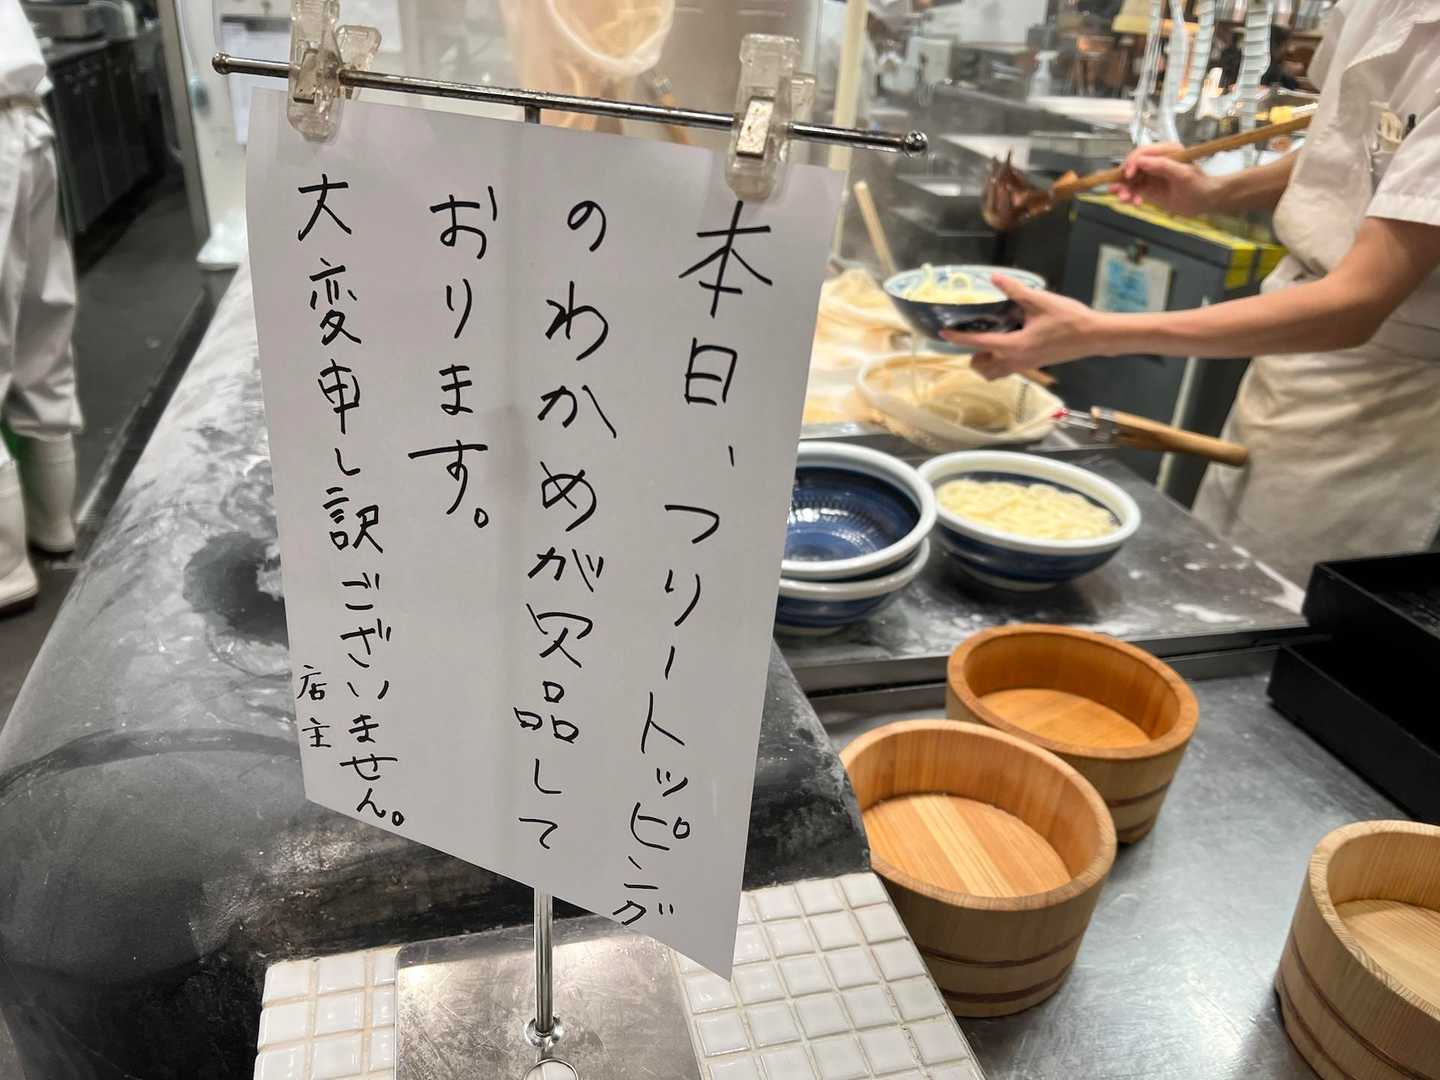 本日、フリートッピング
のわかめが欠品して
おります。
大変申し訳ございません。
店主